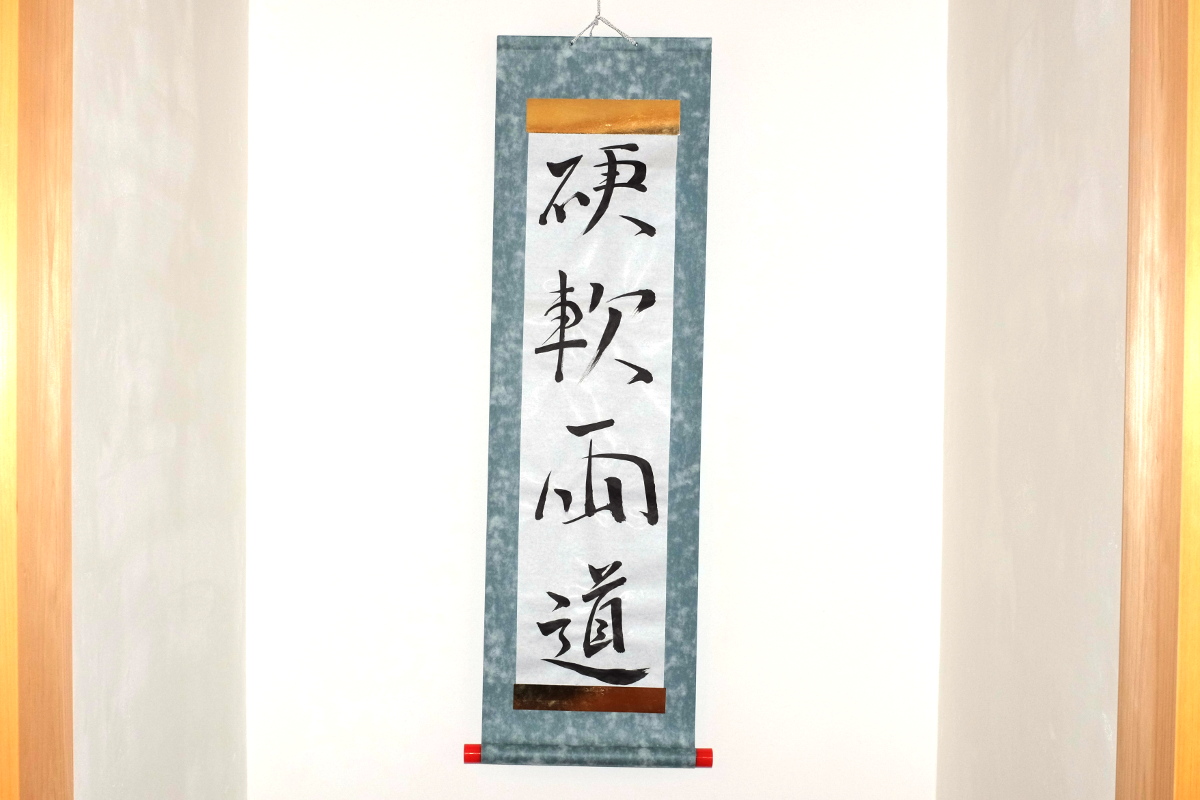 硬軟両道